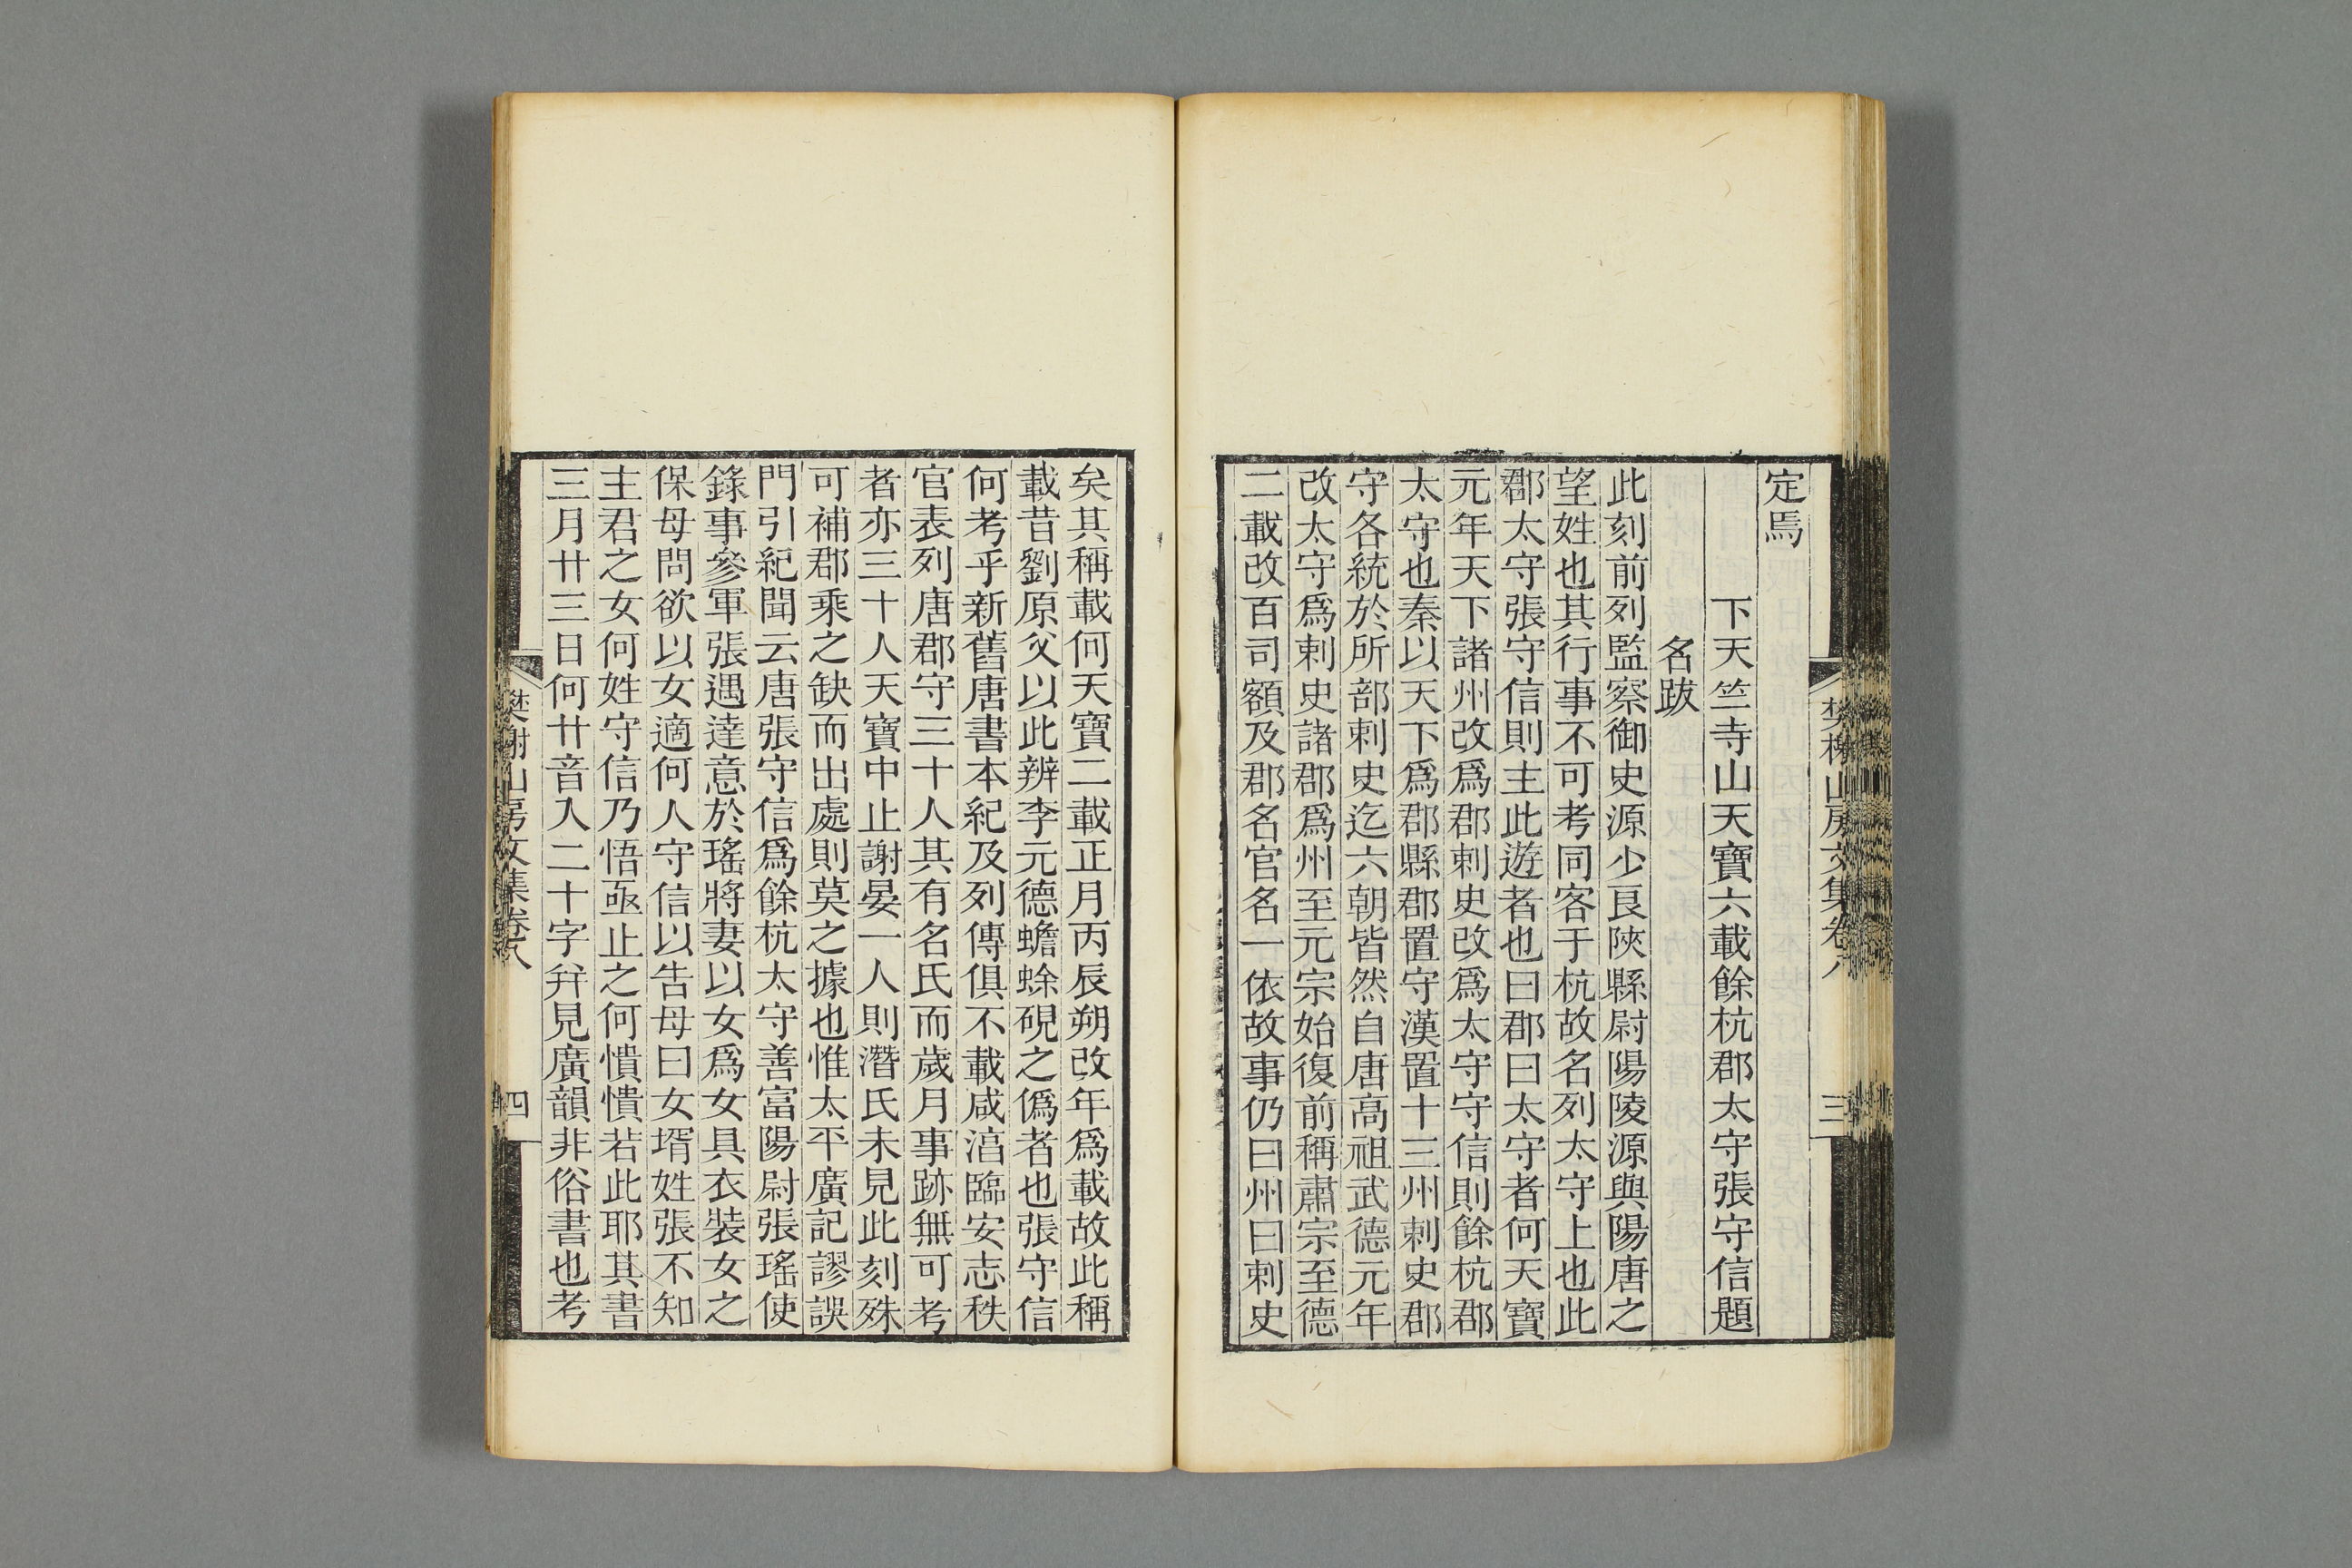 定焉
下天竺寺山天寶六載餘杭郡太守張守信題
名跋
此刻前列監察御史源少良陝縣尉陽陵源與陽唐之
望姓也其行事不可考同客于杭故名列太守上也此
郡太守張守信則主此遊者也曰郡曰太守者何天寶
元年天下諸州改爲郡刺史改爲太守守信則餘杭郡
太守也秦以天下爲郡縣郡置守漢置十三州刺史郡
守各統於所部刺史迄六朝皆然自唐高祖武德元年
改太守爲刺史諸郡爲州至元宗始復前稱肅宗至德
二載改百司額及郡名官名一依故事仍曰州曰刺史
樊榭山房文集卷八
三
矣其稱載何天寶二載正月丙辰朔改年爲載故此稱
載昔劉原父以此辨李元德蟾蜍硯之僞者也張守信
何考乎新舊唐書本紀及列傳俱不載咸湻臨安志秩
官表列唐郡守三十人其有名氏而歲月事跡無可考
者亦三十人天寶中止謝晏一人則潛氏未見此刻殊
可補郡乘之缺而出處則莫之據也惟太平廣記謬誤
門引紀聞云唐張守信爲餘杭太守善富陽尉張瑤使
錄事參軍張遇達意於瑤將妻以女爲女具衣裝女之
保母問欲以女適何人守信以告母曰女壻姓張不知
主君之女何姓守信乃悟亟止之何憒憒若此耶其書
三月廿三日何廿音入二十字幷見廣韻非俗書也考
樊榭山房文集卷八
四